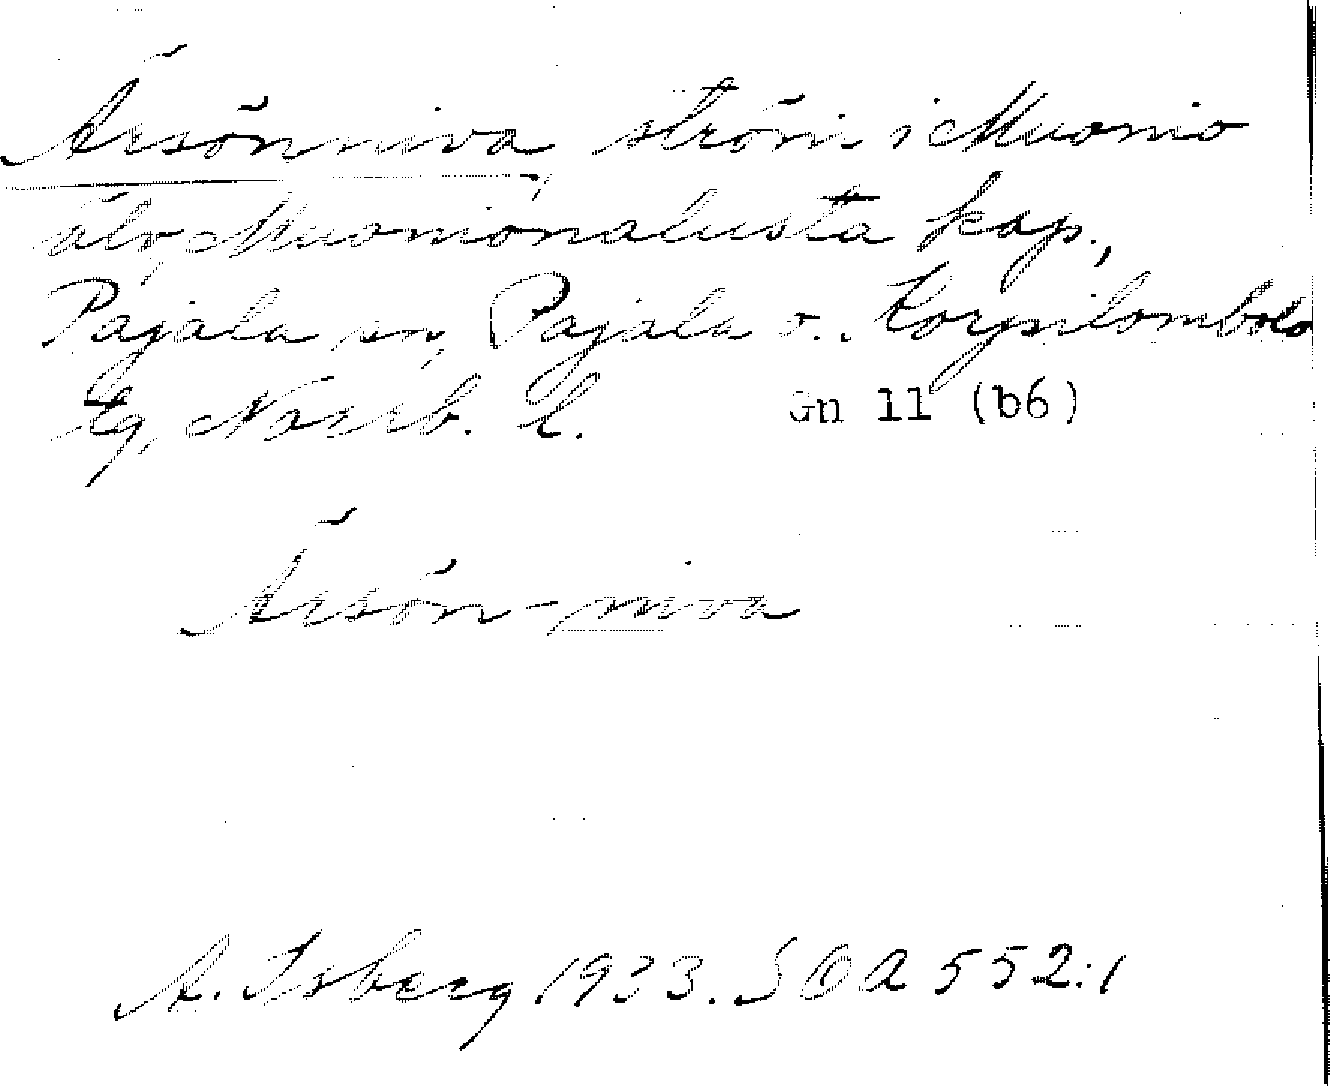 Ärsönniva, ström i Muonio
älv, Muonionalusta kap.,
Pajala sn, Pajala o. Korpilombolo
tg, Norrb. l. Gn 11 (b6)
Ärsön-niva
A. Isberg 1933. SOA 552:1